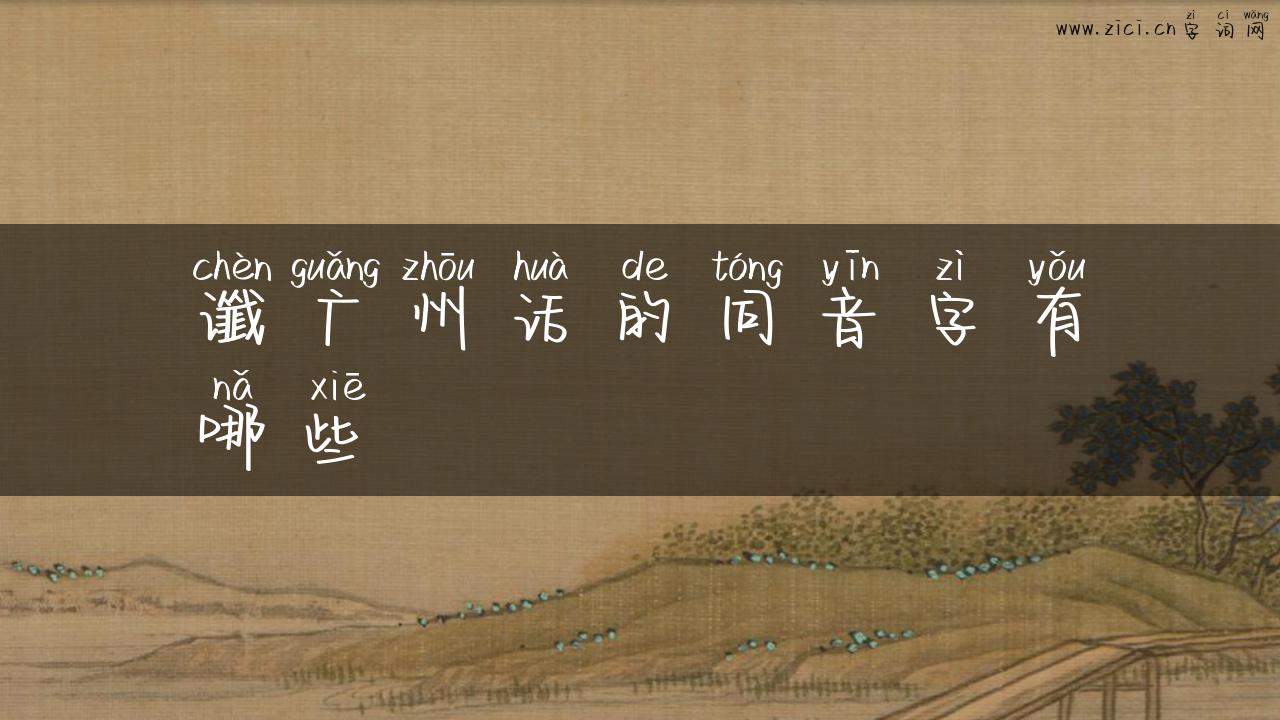 zì cí wǎng
www.zici.cn 字词网
chèn guǎng zhōu huà de tóng yīn zì yǒu
谶广州话的同音字有
nǎ xiē
哪些